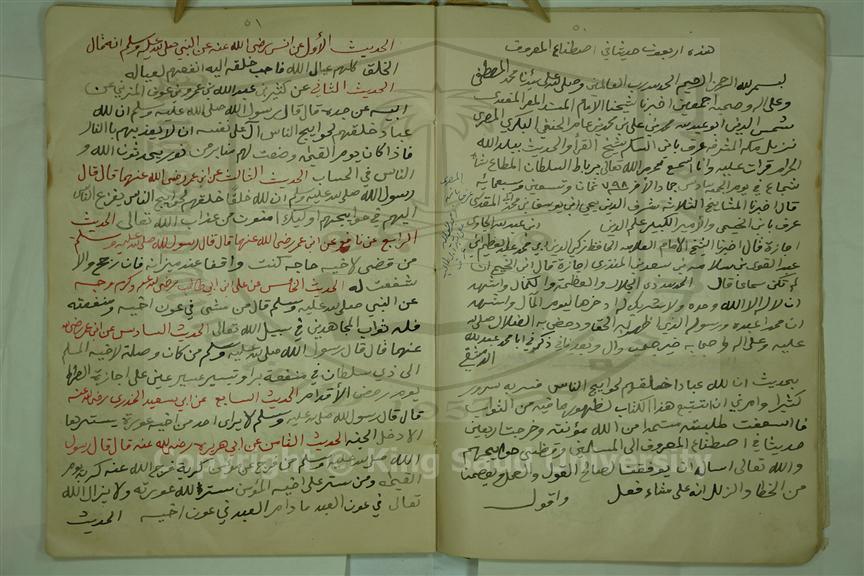 ٥٠
هذه اربعون حديثا في اصطناع المعروف
بسم الله الرحمن الرحيم الحمد لله رب العالمين وصلى الله على سيدنا محمد المصطفى
وعلى اله وصحبه اجمعين اخبرنا شيخنا الامام المسند المعمر المقتدى
شمس الدين ابو عبد الله محمد بن علي بن محمد بن عامر الحنفي البكري المصري
نزيل مكة المشرفة عرف بابن السكر شيخ القرأ والحديث ببلد الله
الحرام قرات عليه وانا اسمع بحرم الله تعالى برباط السلطان المطاع شاه
شجاع في يوم الخميس سادس جماد الاخر ٧٩٨ ثمان وتسعين وسبعمائه
قال اخبرنا المشايخ الثلاثة شرف الدين يحيى ابن يوسف بن المقدسي
عرف بابن المصري والامير الكبير علم الدين ابن عبد الله الجاولي
اجازة قال اخبرنا الشيخ الامام العلامه الحافظ زكي الدين ابي محمد عبد العظيم ابن
عبد القوي بن سلامه بن سعد بن المنذري اجازة قال ابن الخيمي ان
لم تكن سماعا قال الحمد لله ذي الجلال والعظمة والكمال واشهد
ان لا اله الا الله وحده ولا شريك له ذخرها ليوم المآل واشهد
ان محمدا عبده ورسوله الذي اظهر به الحق ودحض به الضلال صلى الله
عليه وعلى اله واصحابه خير صحب وال وبعد فاني ذكر في ابا محمد عبد الله
الدمشقي
بحديث ان لله عبادا خلقهم لحوايج الناس فسر به سرور
كثيرا وامرني ان اشفع هذا الكتاب لظهور ما فيه من الثواب
فاسعفت طلبته مستمدا من الله معونته وخرجت اربعين
حديثا في اصطناع المعروف الى المسلمين وقضا حوايجهم
والله تعالى اسال ان يوفقنا لصالح القول والعمل ويعصمنا
من الخطا والزلل انه على ما يشاء فعل واقول
٥١
الحديث الأول عن انس رضي الله عنه عن النبي صلى الله عليه وسلم انه قال
الخلق كلهم عيال الله فاحب خلقه اليه انفعهم لعياله
الحديث الثاني عن كثير بن عبد الله بن عمرو بن عوف المزني عن
ابيه عن جده قال قال رسول الله صلى الله عليه وسلم ان لله
عبادا خلقهم لحوايج الناس الى على نفسه ان لا يعذبهم بالنار
فاذا كان يوم القيمة وضعت لهم منابر من نور يحدثون الله و
الناس في الحساب الحديث الثالث عن ابن عمر رضي الله عنهما قال قال
رسول الله صلى الله عليه وسلم ان لله خلقا خلقهم لحوايج الناس يفزع الناس
اليهم في حوايجهم اوليك امنون من عذاب الله تعالى الحديث
الرابع عن نافع عن ابن عمر رضي الله عنهما قال قال رسول الله صلى الله عليه وسلم
من قضى لاخيه حاجه كنت واقفا عند ميزانه فان رجح والا
شفعت له الحديث الخامس عن علي بن ابي طالب رضي الله عنه وكرم وجهه
عن النبي صلى الله عليه وسلم قال من مشى في عون اخيه ومنفعته
فله ثواب المجاهدين في سبيل الله تعالى الحديث السادس عن ابن عمر رضي الله
عنهما قال قال رسول الله صلى الله عليه وسلم من كان وصلة لاخيه المسلم
الى ذي سلطان في منفعة بر او تيسير عسير اعين على اجازة الصراط
يوم دحض الأقدام الحديث السابع عن ابي سعيد الخدري رضي الله عنه
قال قال رسول الله صلى الله عليه وسلم لا يرى احد من اخيه عورة يسترها
الا دخل الجنه الحديث الثامن عن ابي هريرة رضي الله عنه قال قال رسول
الله صلى الله عليه وسلم من فرج عن مؤمن كربة فرج الله عنه كربة يوم
القيمة ومن ستر على اخيه المؤمن ستر الله عورته ولا يزال الله
تعالى في عون العبد ما دام العبد في عون اخيه الحديث
Copyright © King Saud University
1957